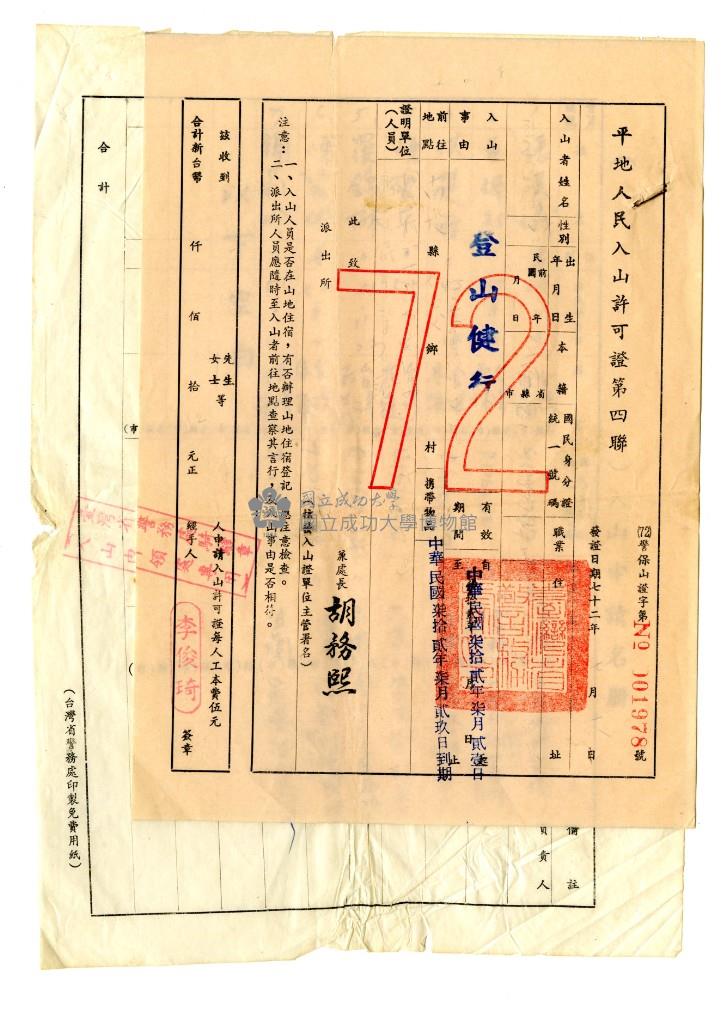 平地人民入山許可證第四聯
(72)警保山證字第№ 001978號
發證日期七十二年 月 日
入山者姓名
性別
出生年月日
民國前 年 月 日
本籍
省縣市
國民身分證統一號碼
職業
住址
入山事由
登山健行
有效期間
自
至
中華民國柒拾貳年柒月貳壹日
中華民國柒拾貳年柒月貳玖日到期
月
日止
前往地點
縣 鄉 村
攜帶物品
證明單位(人員)
72
此致
派出所
兼處長 胡務熙
(核發入山證單位主管署名)
注意：一、入山人員是否在山地住宿，有否辦理山地住宿登記，應注意檢查。
二、派出所人員應隨時至入山者前往地點查察其言行，及入山事由是否相符。
茲收到 先生女士等 人申請入山許可證每人工本費伍元
合計新台幣 仟 佰 拾 元正 經手人 簽章
李俊琦
國立成功大學
國立成功大學博物館
合計
備註
負責人
(台灣省警務處印製免費用紙)